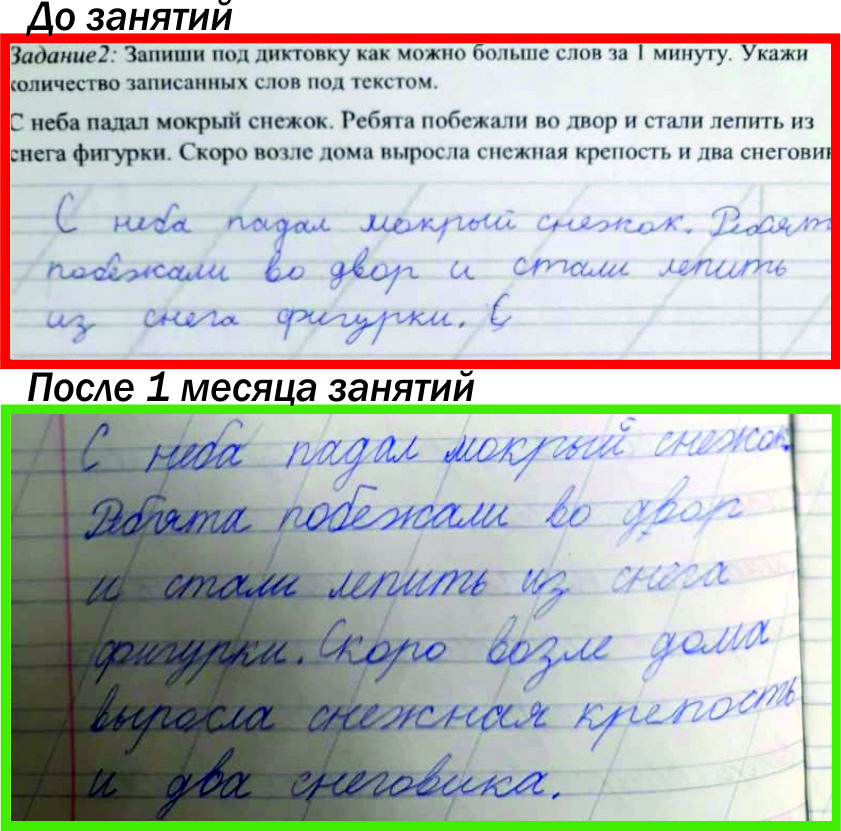 До занятий
Задание2: Запиши под диктовку как можно больше слов за 1 минуту. Укажи
количество записанных слов под текстом.
С неба падал мокрый снежок. Ребята побежали во двор и стали лепить из
снега фигурки. Скоро возле дома выросла снежная крепость и два снегови
С неба падал мокрый снежок. Ребят
побежали во двор и стали лепить
из снега фигурки. С
После 1 месяца занятий
С неба падал мокрый снежок.
Ребята побежали во двор
и стали лепить из снега
фигурки. Скоро возле дома
выросла снежная крепость
и два снеговика.